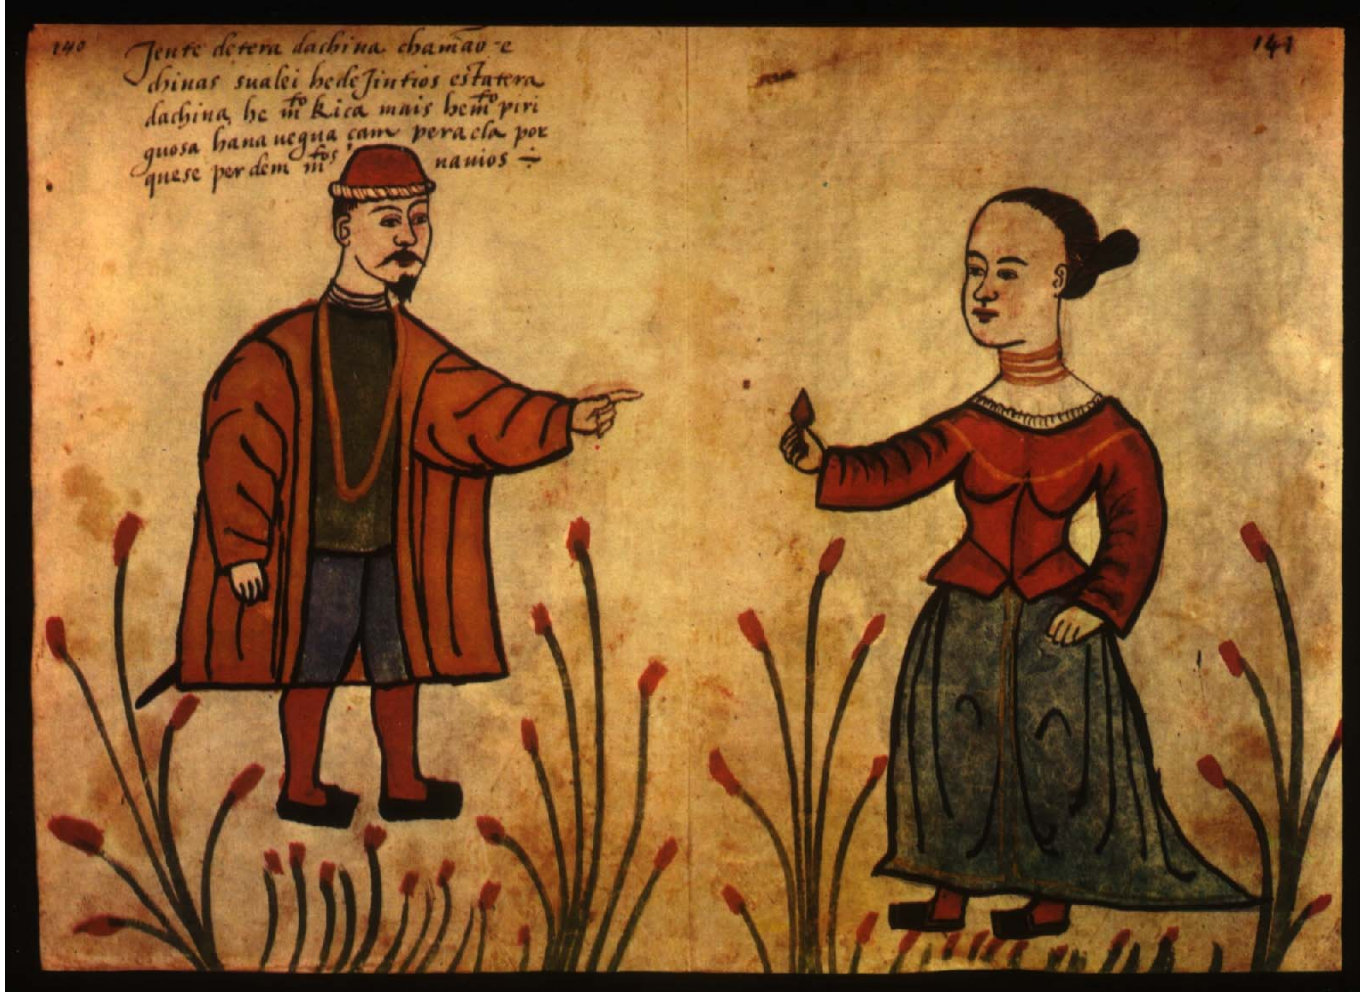 140
141
Jente detera dachina chamão-e
chinas sualei hede Jintios estatera
dachina he mto Rica mais hemto piri
guosa hana uegua çam pera ela por
quese perdem mtos nauios ÷